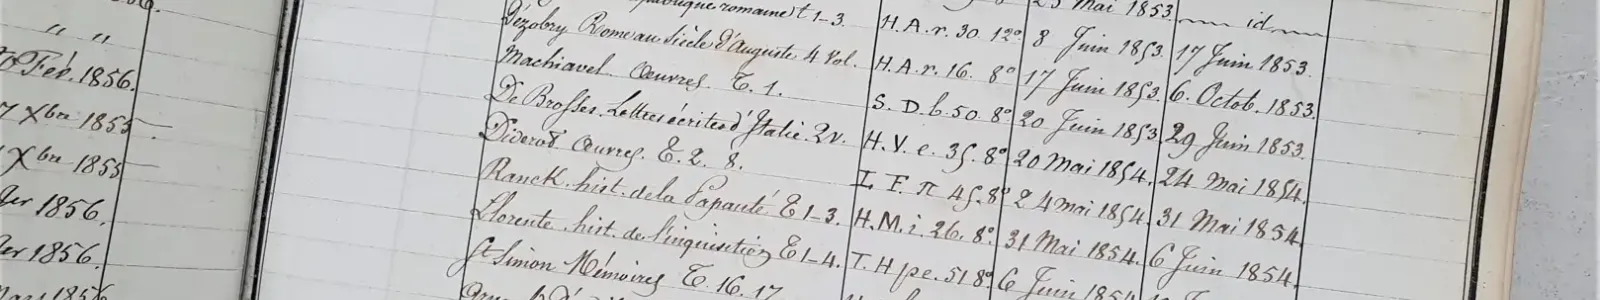 " "
Fév. 1856.
Xbre 1855
Xbre 1855
1856.
1856.
1856
romaine t 1-3. 23 Mai 1853. id
Dézobry Rome au Siècle d'Auguste 4 Vol. H. A. r. 30. 12° 8 Juin 1853. 17 Juin 1853.
Machiavel Œuvres. T. 1. H. A. r. 16. 8° 17 Juin 1853. 6. Octob. 1853.
De Brosses Lettres écrites d'Italie. 2 v. S. D. b. 50. 8° 20 Juin 1853 29 Juin 1853.
Diderot Œuvres. T. 2. 8. H. V. e. 35. 8° 20 Mai 1854. 24 Mai 1854.
Ranck. hist. de la Papauté T 1-3. I. F. π 45. 8° 24 Mai 1854. 31 Mai 1854.
Llorente hist. de l'inquisition T 1-4. H. M. i. 26. 8° 31 Mai 1854. 6 Juin 1854.
St Simon Mémoires T. 16. 17 T. H pe. 51 8° 6 Juin 1854